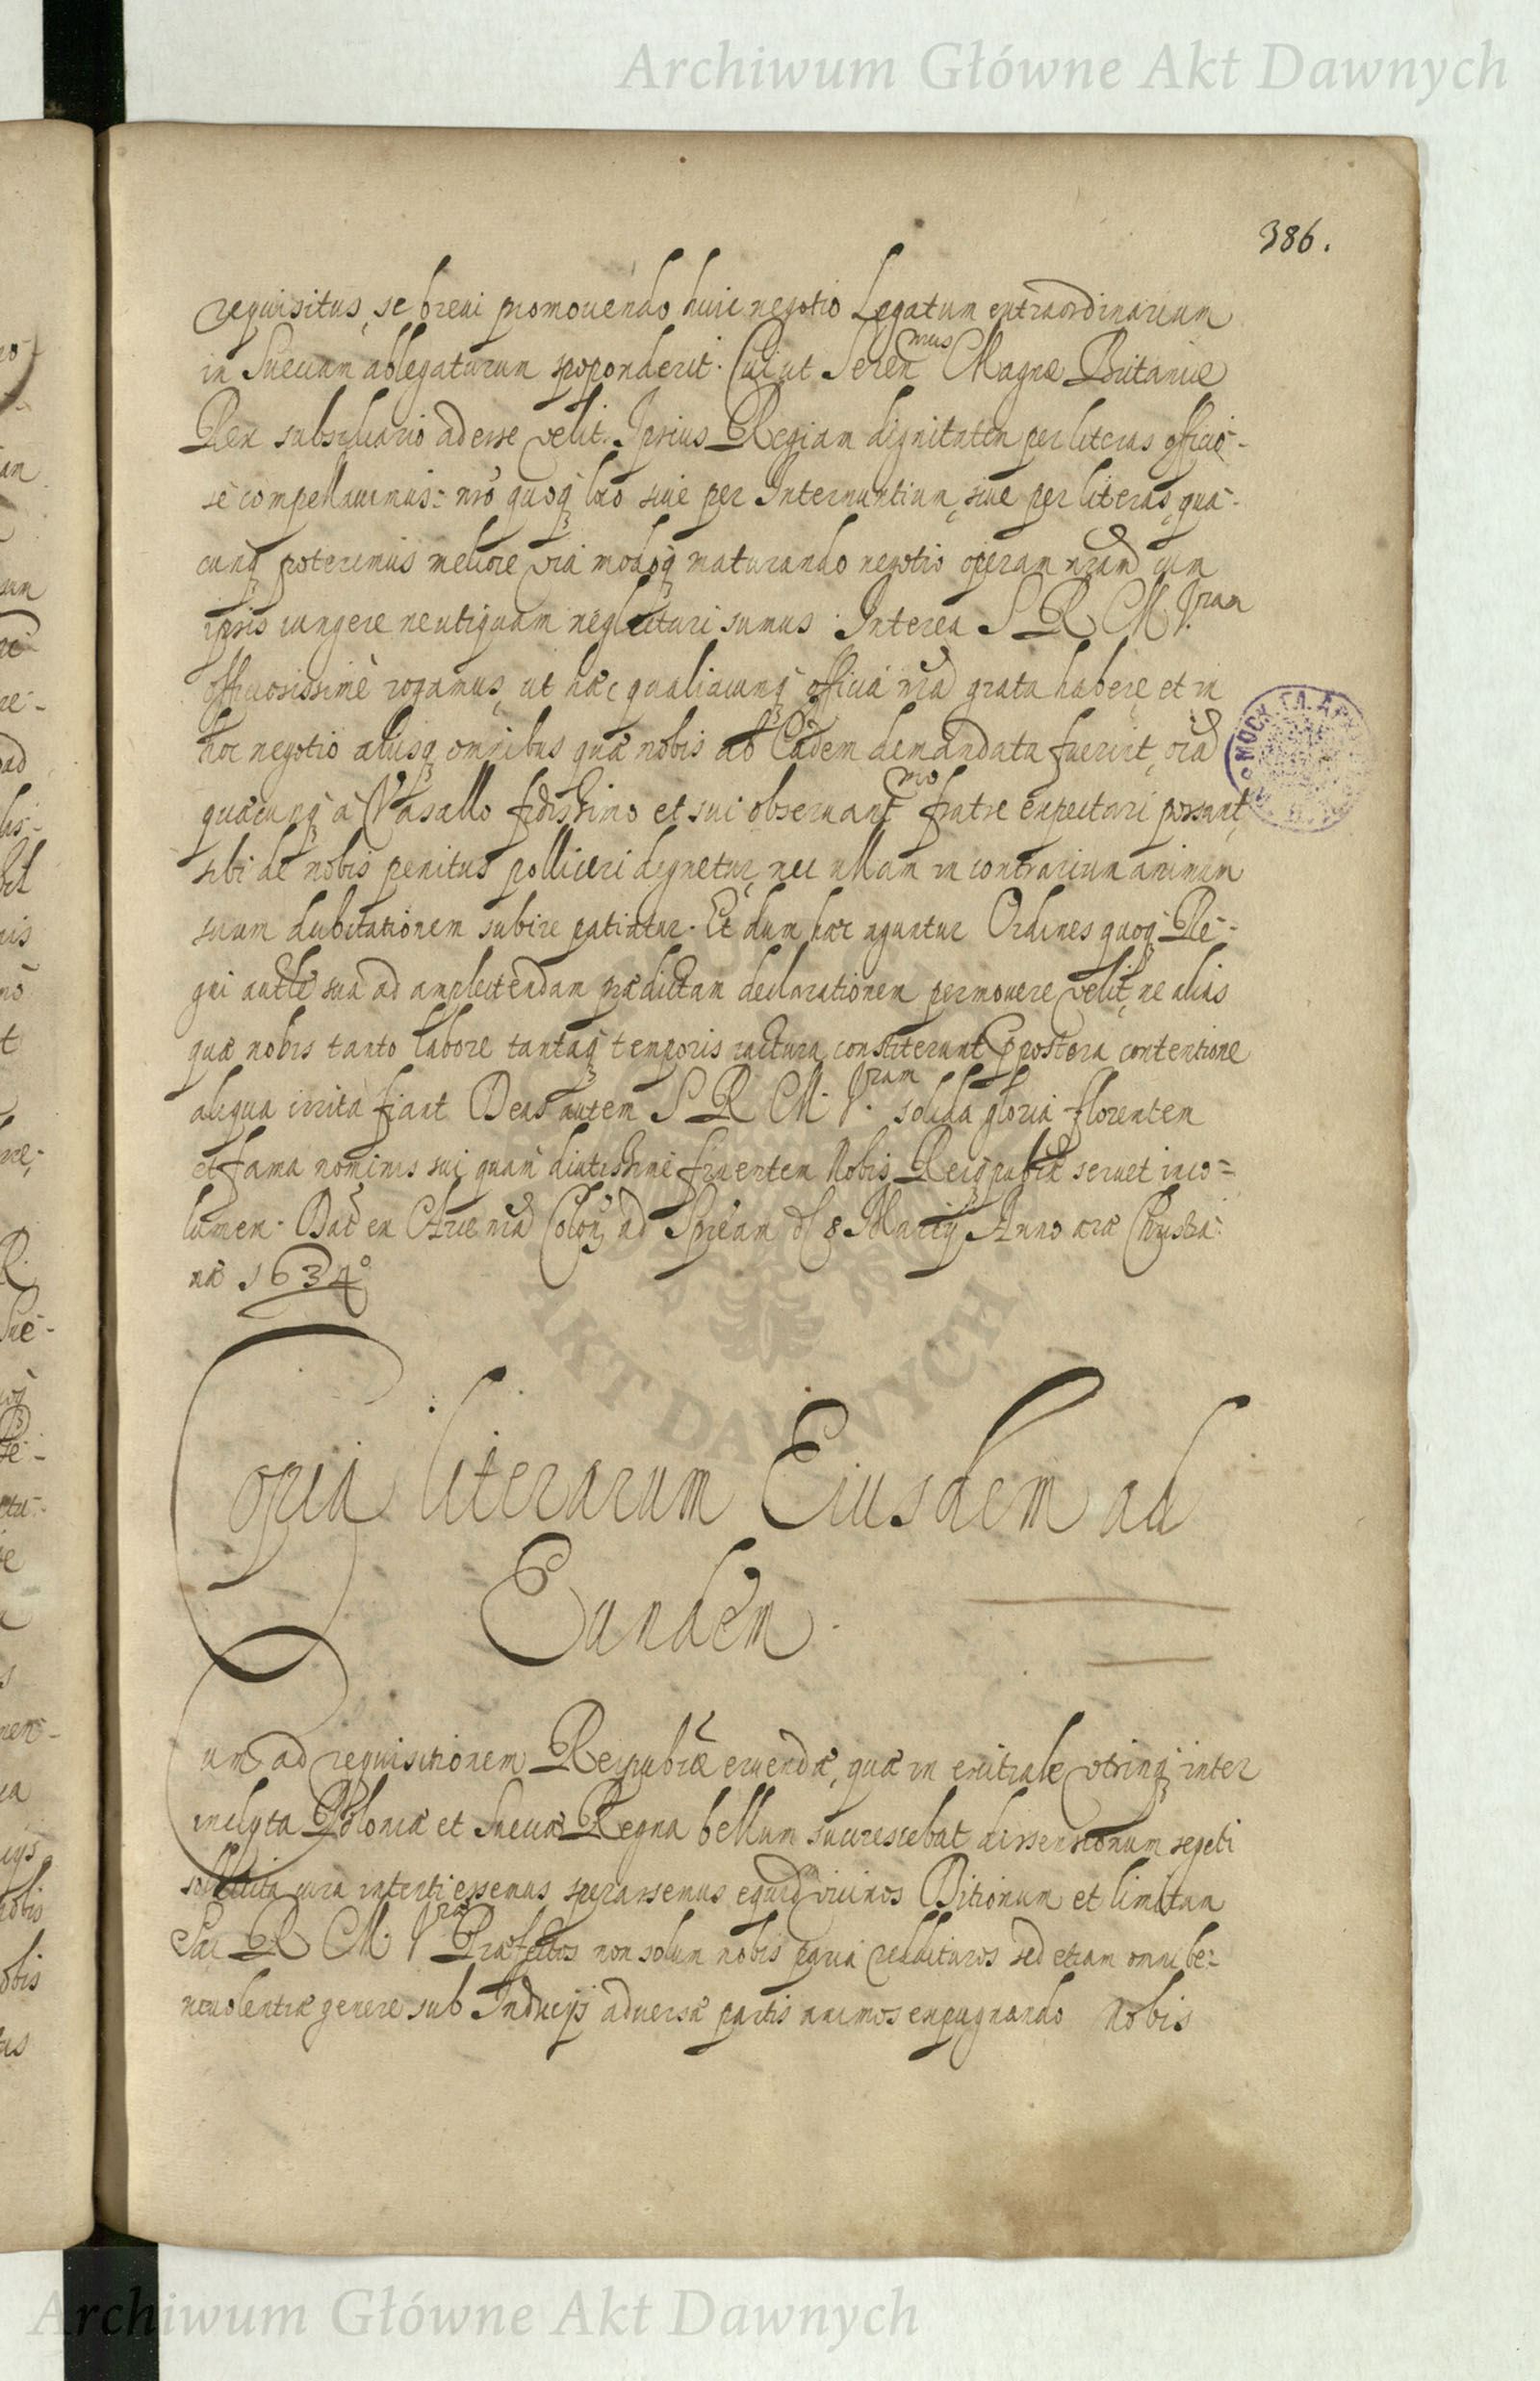 Archiwum Główne Akt Dawnych
386.
requisitus, se breui promouendo huic negotio Legatum extraordinarium
in Sueciam ablegaturum spoponderit. Cui ut Seren mus Magnæ Britaniæ
Rex subsidiario adesse velit. Ipsius Regiam dignitatem per literas officio-
sè compellauimus: nrõ quoq loco siue per Internuntium, siue per literas, qua-
cunq poterimus meliore via modoq maturando negotio operam nram cum
ipsis iungere neutiquam neglecturi sumus. Interea S R M. V. ram
officiosissimè rogamus, ut hæc qualiacunq officia nra grata habere, et in
hoc negotio alijsq omnibus quæ nobis ab Eadem demandata fuerint, oia
quæcunq à Vasallo fidissimo et sui obseruant mo fratre expectari possunt,
sibi de nobis penitus polliceri dignetur, nec ullam in contrarium animum
suum dubitationem subire patiatur. Et dum hæc aguntur Ordines quoq Re-
gni autte sua ad amplectendam prædictam declarationem permouere velit, ne alias
quæ nobis tanto labore tantaq temporis iactura constiterunt postera contentione
aliqua irrita fiant. Deus autem S R M. V. ram solida gloria florentem
et fama nominis sui quam diutissimè fruentem Nobis Reiqpublæ seruet inco=
lumem. Dat ex Arce nra Colon ad Spream d 8 Martij Anno æræ Christia-
næ 1634º
Copia literarum Eiusdem ad
Eundem.
Cum ad requisitionem Reipublæ eruendæ, quæ in exitiale vtrinq inter
inclyta Poloniæ et Sueciæ Regna bellum succrescebat dissensionum segeti
sollicita cura intenti essemus sperassemus equidem vicinos Ditionum et limitan
Sac R M. V ræ Præfectos non solum nobis paria reddituros sed etiam omni be-
neuolentiæ genere sub Inducijs aduersæ partis animos expugnando nobis
Archiwum Główne Akt Dawnych